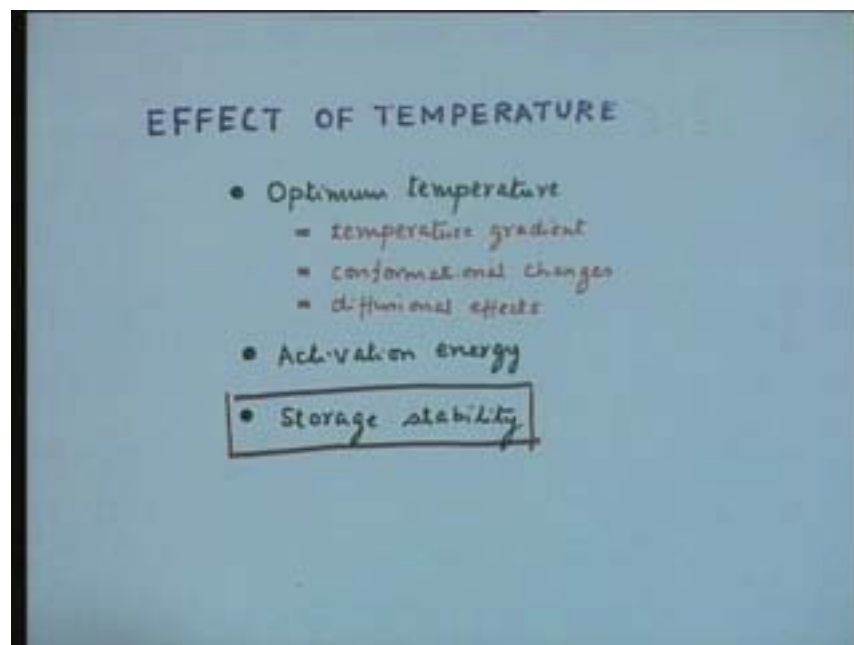 EFFECT OF TEMPERATURE
• Optimum temperature
= temperature gradient
= conformational changes
= diffusional effects
• Activation energy
• Storage stability